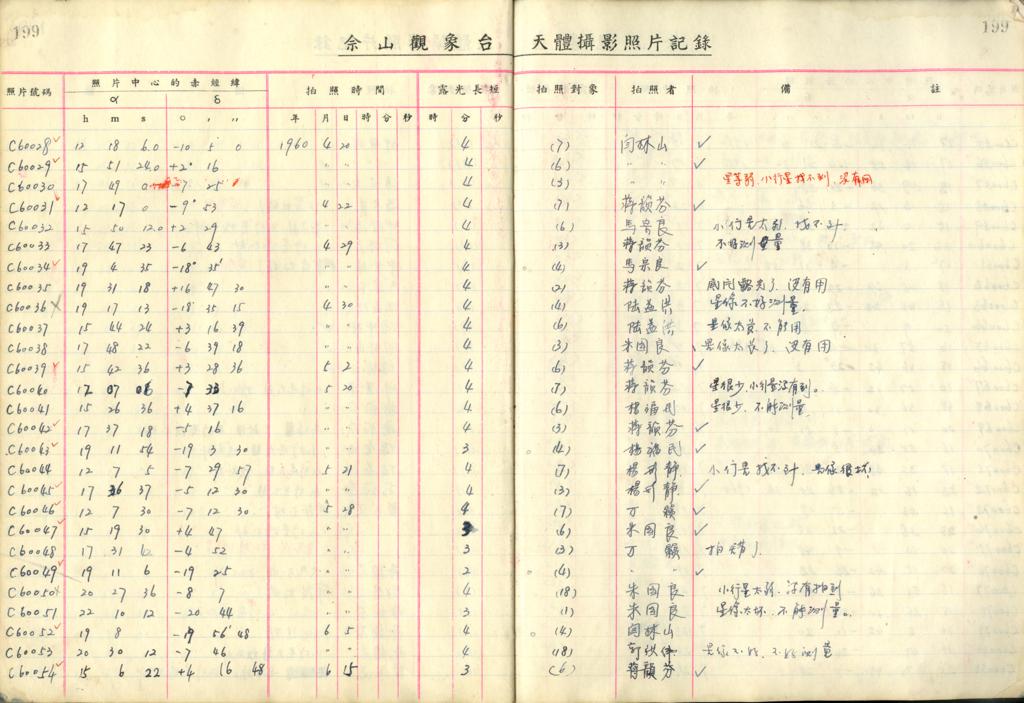 199 199
佘山觀象台 天體攝影照片記錄
照片號碼 照片中心的赤經緯 拍照時間 露光長短 拍照對象 拍照者 備 註
α δ
h m s ° ′ ″ 年 月 日 時 分 秒 時 分 秒
C60028 ✓ 12 18 6.0 -10 5 0 1960 4 20 4 (7) 闫林山 ✓
C60029 ✓ 15 51 24.0 +2° 16 " " 4 (6) " " ✓
C60030 17 49 0 -7 25 " " 4 (3) " " 星等弱，小行星找不到，没有用
C60031 ✓ 12 17 0 -9° 53 4 22 4 (7) 蒋韻芬 ✓
C60032 15 50 12.0 +2 29 " " 4 (6) 小行星太弱，找不到
C60033 17 47 23 -6 43 4 29 4 (3) 蒋韻芬 不好测量
C60034 ✓ 19 4 35 -18° 35′ " " 4 (4) ✓
C60035 19 31 18 +16 47 30 " " 4 (2) 蒋韻芬 没有用
C60036 19 17 13 -18 35 15 4 30 4 (4) 陆益洪 星像不好测量.
C60037 15 44 24 +3 16 39 " " 4 (6) 陆益洪 星像太长，不能用
C60038 17 48 22 -6 39 18 " " 4 (3) 朱国良 星像太长了，没有用
C60039 ✓ 15 42 36 +3 28 36 5 2 4 (6) 蒋韻芬 ✓
C60040 12 07 06 -7 33 5 20 4 (7) 蒋韻芬 星很少，小行星没有到。
C60041 15 26 36 +4 37 16 " " 4 (6) 楊福民 星很少，不能测量
C60042 ✓ 17 37 18 -6 16 " " 4 (3) 蒋韻芬 ✓
C60043 ✓ 19 11 54 -19 3 30 " " 3 (4) 楊福民 ✓
C60044 12 7 5 -7 29 57 5 21 4 (7) 小行星找不到，星像很坏
C60045 ✓ 17 36 37 -5 12 30 " " 4 (3) ✓
C60046 ✓ 12 7 30 -7 12 30 5 28 4 (7) 万籟 ✓
C60047 ✓ 15 19 30 +4 47 " " 3 (6) 朱国良 ✓
C60048 17 31 12 -4 52 " " 3 (3) 万籟 拍错了.
C60049 ✓ 19 11 6 -19 25 " " 2 (4) " " ✓
C60050 20 27 36 -8 7 " " 4 (18) 朱国良 小行星太弱，没有拍到
C60051 22 10 12 -20 44 " " 3 (1) 朱国良 星像太坏，不能测量。
C60052 ✓ 19 8 -19 56′ 48 6 5 4 (4) 闫林山
C60053 20 30 12 -7 46 " " 4 (18) 星像不好，不好测量
C60054 ✓ 15 6 22 +4 16 48 6 15 3 (6) 蒋韻芬 ✓